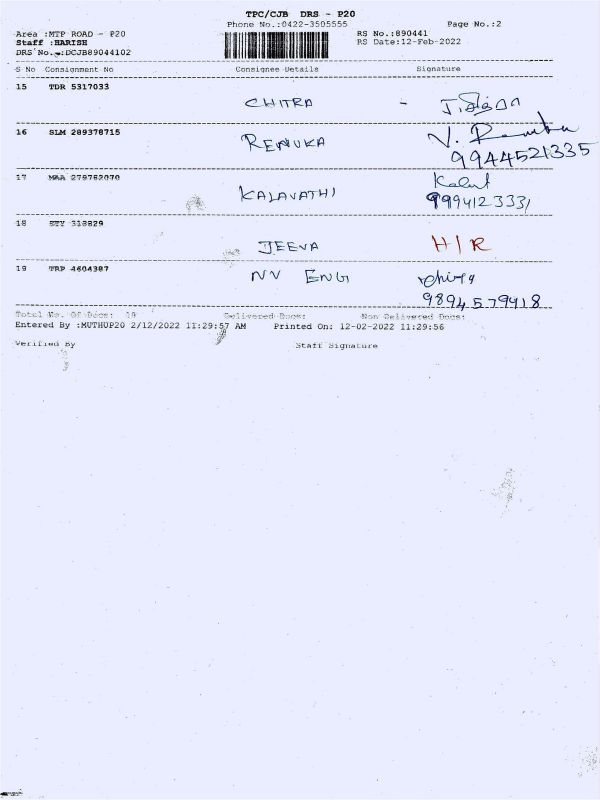 TPC/CJB DRS - P20
Phone No.:0422-3505555 Page No.:2
Area :MTP ROAD - P20 RS No.:890441
Staff :HARISH RS Date:12-Feb-2022
DRS No. :DCJB89044102
S No Consignment No Consignee Details Signature
15 TDR 5317033
CHITRA -
16 SLM 289378715
RENUKA
9944521335
17 MAA 278782070
KALAVATHI
9994123331
18 STY 318829
JEEVA H/R
19 TRP 4604387
NV ENG
9894579418
Total No. Of Docs: 19 Delivered Docs: Non Delivered Docs:
Entered By :MUTHUP20 2/12/2022 11:29:57 AM Printed On: 12-02-2022 11:29:56
Verified By Staff Signature